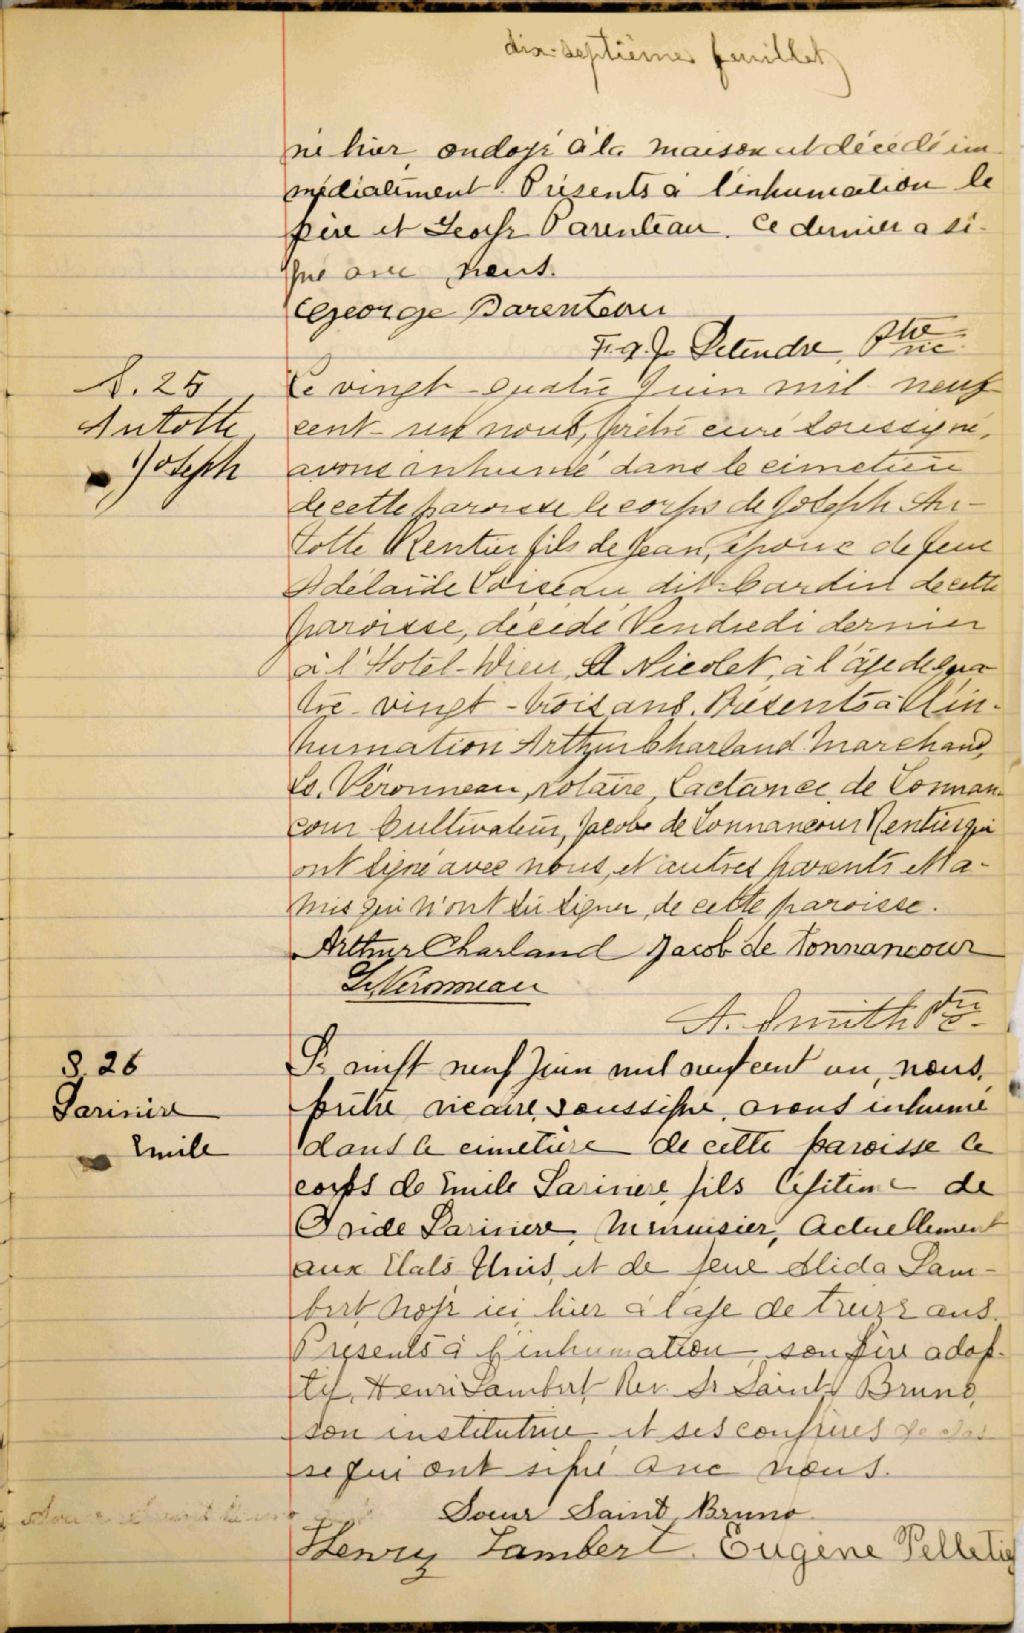 dix-septième feuillet
né hier, ondoyé à la maison et décédé im-
médiatement. Présents à l'inhumation le
père et George Parenteau. Ce dernier a si-
gné avec nous.
George Parenteau
F. A. J. Ptre vic.
S. 25
Antotte
Joseph
Le vingt-quatre Juin mil neuf
cent-un nous, prêtre curé soussigné,
avons inhumé dans le cimetière
de cette paroisse le corps de Joseph An-
totte Rentier fils de Jean, époux de feue
Adélaïde Loiseau dit Cardin de cette
paroisse, décédé Vendredi dernier
à l'Hotel-Dieu, Nicolet, à l'âge de qua
tre-vingt-trois ans. Présents à l'in-
humation Arthur Charland Marchand,
Ls. Véronneau, notaire, Lactance de Tonnan-
cour Cultivateur, Jacob de Tonnancour Rentier qui
ont signé avec nous, et autres parents et a-
mis qui n'ont su signer, de cette paroisse.
Arthur Charland Jacob de Tonnancour
Ls Véronneau
A. Smith Ptre C.
S. 26
Larivière
Emile
Le vingt neuf Juin mil neuf cent un, nous,
prêtre vicaire, soussigné, avons inhumé
dans le cimetière de cette paroisse le
corps de Emile Larivière, fils légitime de
Ovide Larivière, Menuisier, Actuellement
aux Etats Unis, et de feue Alida Lam-
bert, noyé ici, hier à l'âge de treize ans.
Présents à l'inhumation, son père adop-
tif, Henri Lambert, Rev. Sr Saint Bruno,
son institutrice et ses confrères de clas-
se qui ont signé avec nous.
Soeur Saint Bruno
Henry Lambert. Eugène Pelletier